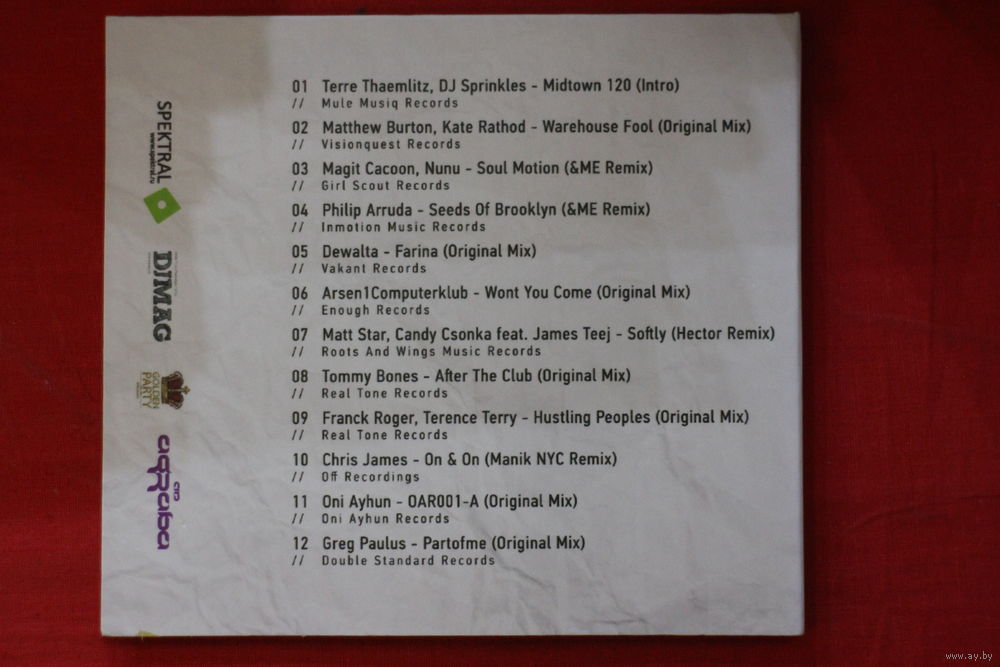 01 Terre Thaemlitz, DJ Sprinkles - Midtown 120 (Intro)
// Mule Musiq Records
02 Matthew Burton, Kate Rathod - Warehouse Fool (Original Mix)
// Visionquest Records
03 Magit Cacoon, Nunu - Soul Motion (&ME Remix)
// Girl Scout Records
04 Philip Arruda - Seeds Of Brooklyn (&ME Remix)
// Inmotion Music Records
05 Dewalta - Farina (Original Mix)
// Vakant Records
06 Arsen1Computerklub - Wont You Come (Original Mix)
// Enough Records
07 Matt Star, Candy Csonka feat. James Teej - Softly (Hector Remix)
// Roots And Wings Music Records
08 Tommy Bones - After The Club (Original Mix)
// Real Tone Records
09 Franck Roger, Terence Terry - Hustling Peoples (Original Mix)
// Real Tone Records
10 Chris James - On & On (Manik NYC Remix)
// Off Recordings
11 Oni Ayhun - OAR001-A (Original Mix)
// Oni Ayhun Records
12 Greg Paulus - Partofme (Original Mix)
// Double Standard Records
SPEKTRAL
www.spektral.ru
DJMAG
GOLDEN
PARTY
aqRaba
www.ay.by